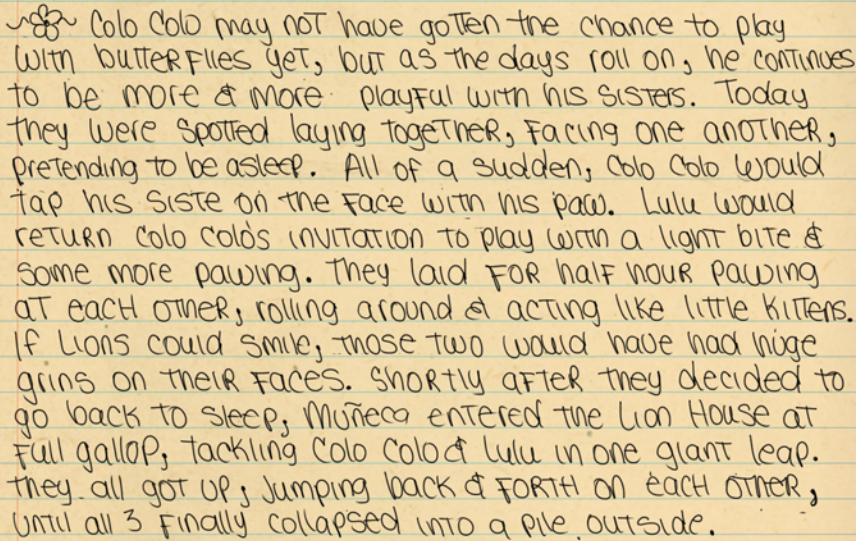 Colo Colo may not have gotten the chance to play
with butterflies yet, but as the days roll on, he continues
to be more & more playful with his sisters. Today
they were spotted laying together, facing one another,
pretending to be asleep. All of a sudden, Colo Colo would
tap his siste on the face with his paw. Lulu would
return Colo Colo's invitation to play with a light bite &
some more pawing. They laid for half hour pawing
at each other, rolling around & acting like little kittens.
If Lions could smile, those two would have had huge
grins on their faces. Shortly after they decided to
go back to sleep, Muñeca entered the Lion House at
full gallop, tackling Colo Colo & Lulu in one giant leap.
They all got up, jumping back & forth on each other,
until all 3 finally collapsed into a pile outside.